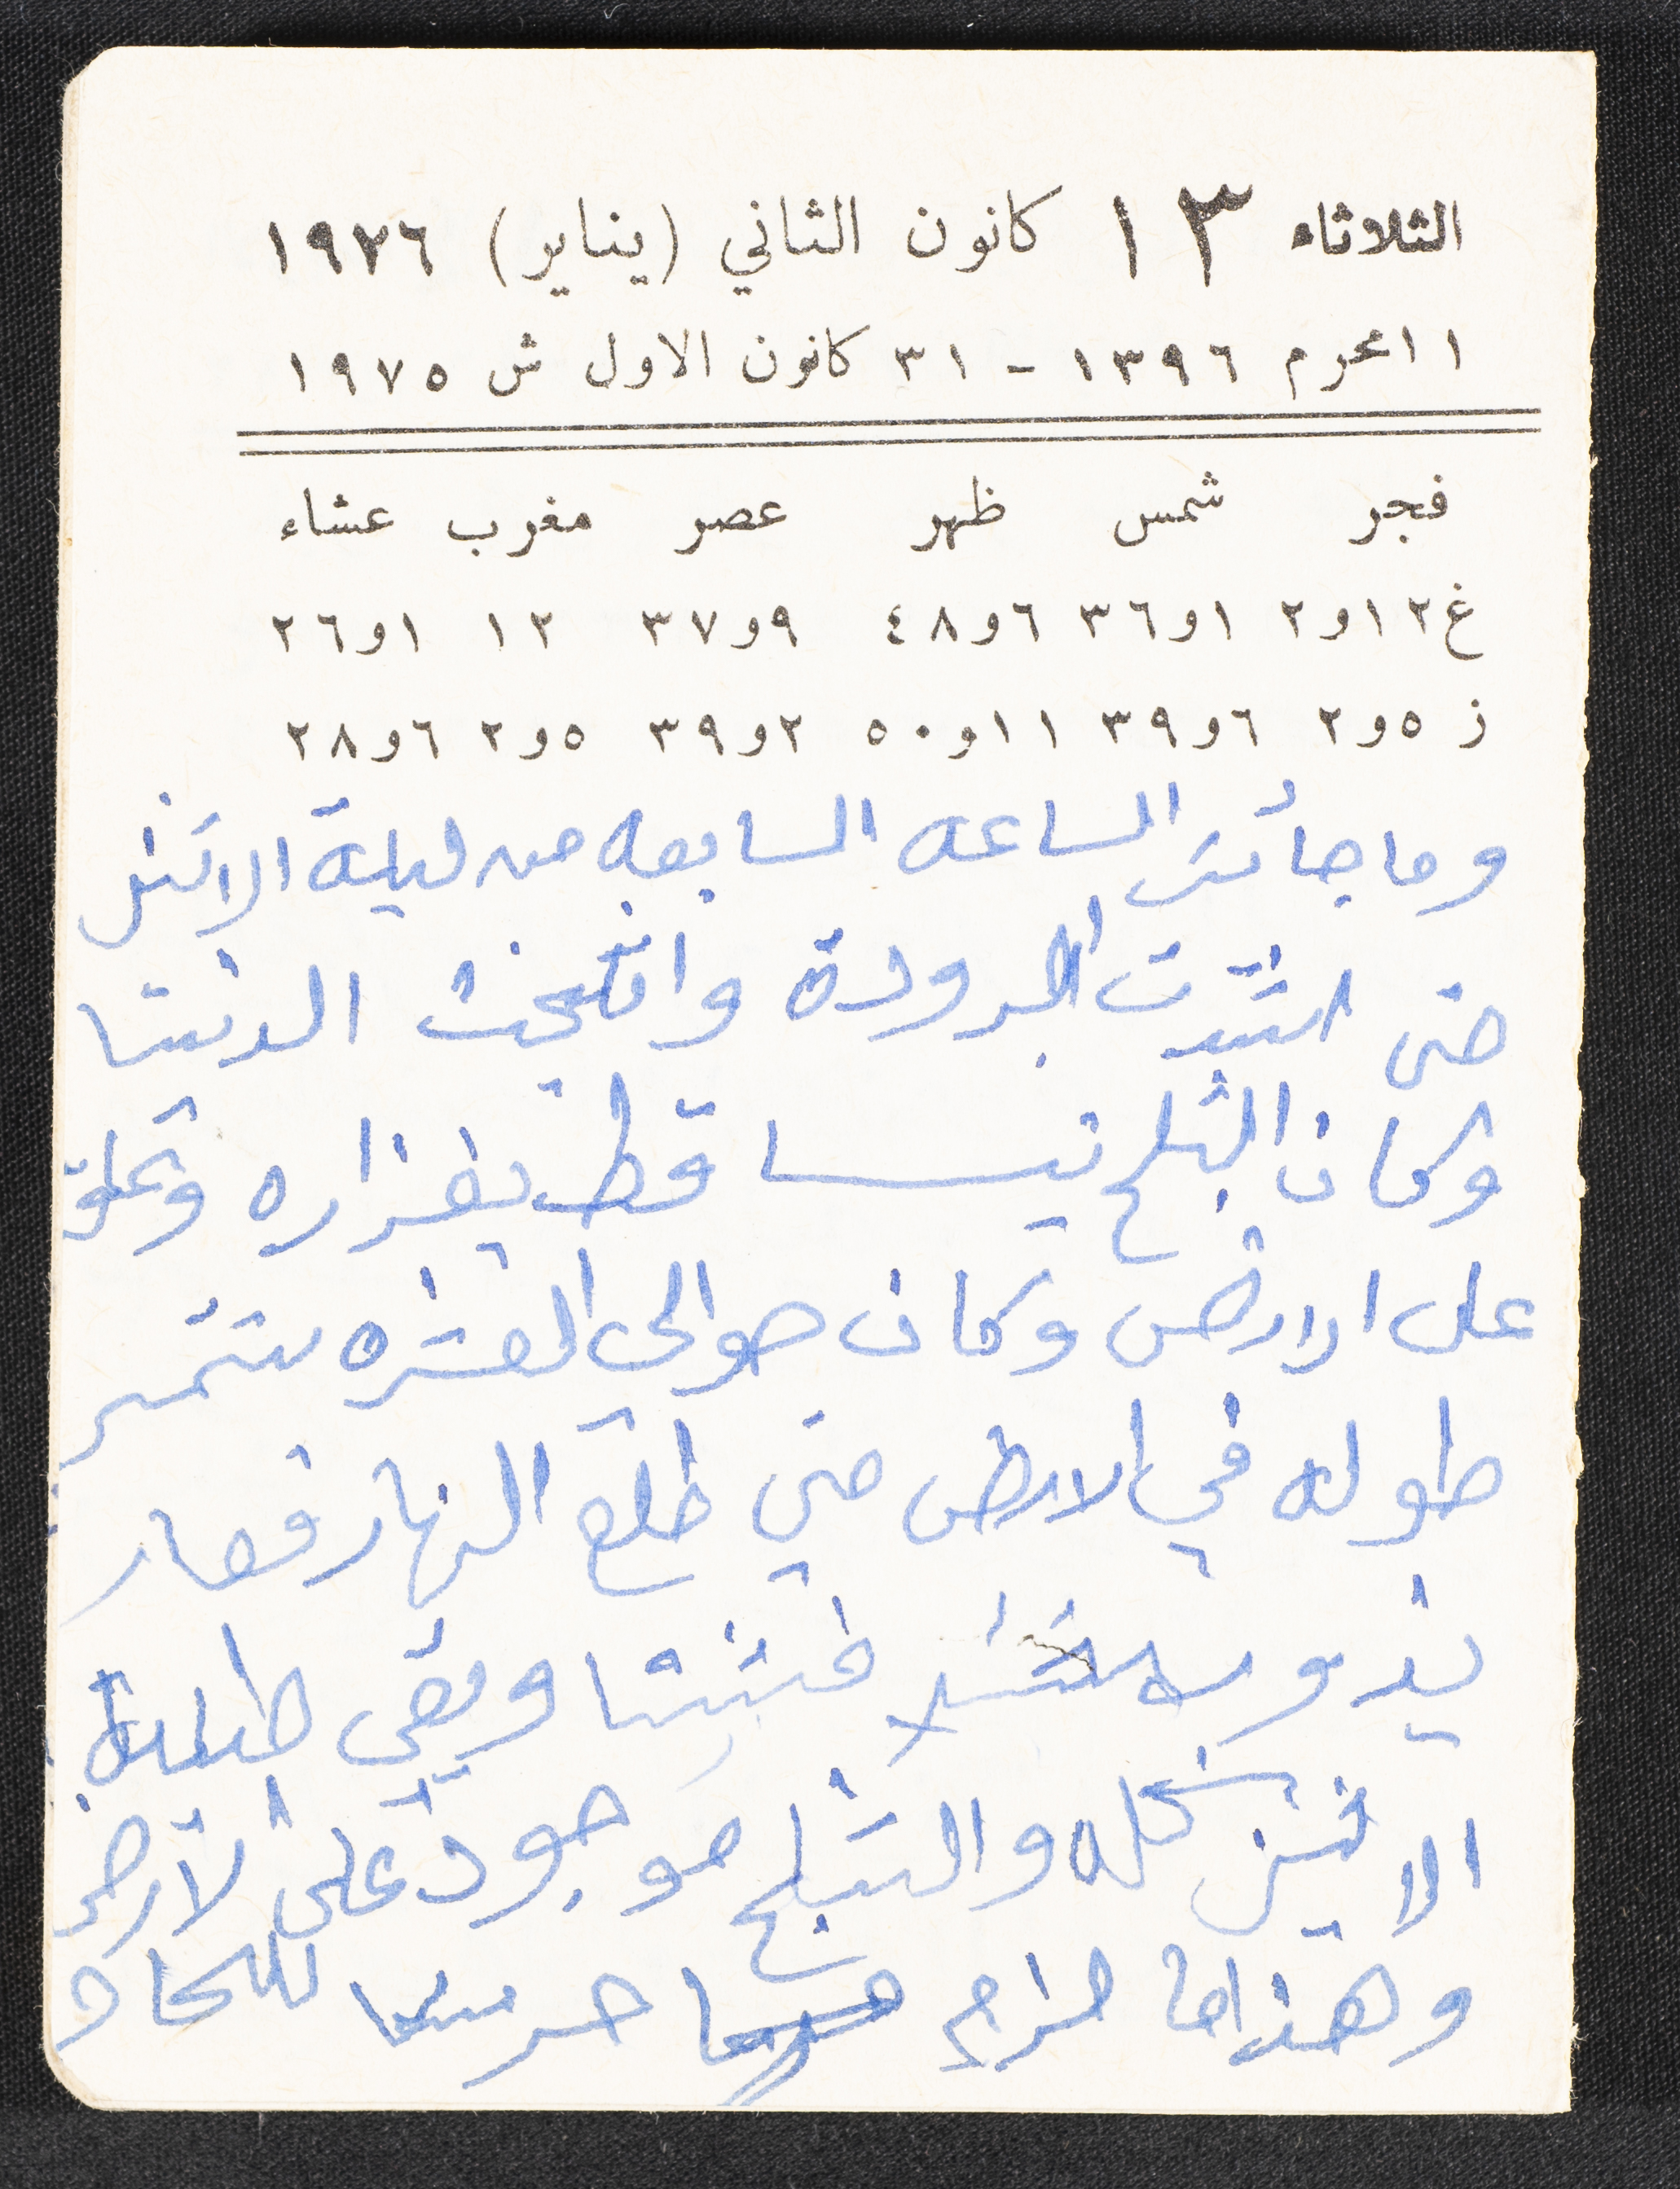 الثلاثاء ١٣ كانون الثاني (يناير) ١٩٧٦
١١ محرم ١٣٩٦ - ٣١ كانون الاول ش ١٩٧٥
فجر شمس ظهر عصر مغرب عشاء
غ ١٢و٢ ١و٣٦ ٦و٤٨ ٩و٣٧ ١٢ ١و٢٦
ز ٥و٢ ٦و٣٩ ١١و٥٠ ٢و٣٩ ٥و٢ ٦و٢٨
وما جأت الساعه السابعه من ليلة الاثنين
حتى اشتدت البرودة الدنيا
وكان الثلج يتساقط بغزاره
على الارض وكان حوالى العشره سنتمتر
طوله في الارض حتى طلع النهار فصار
يذوب فشيئا وبقي طيلة
الاثنين كله والثلج موجود على لارض
وهذا ما